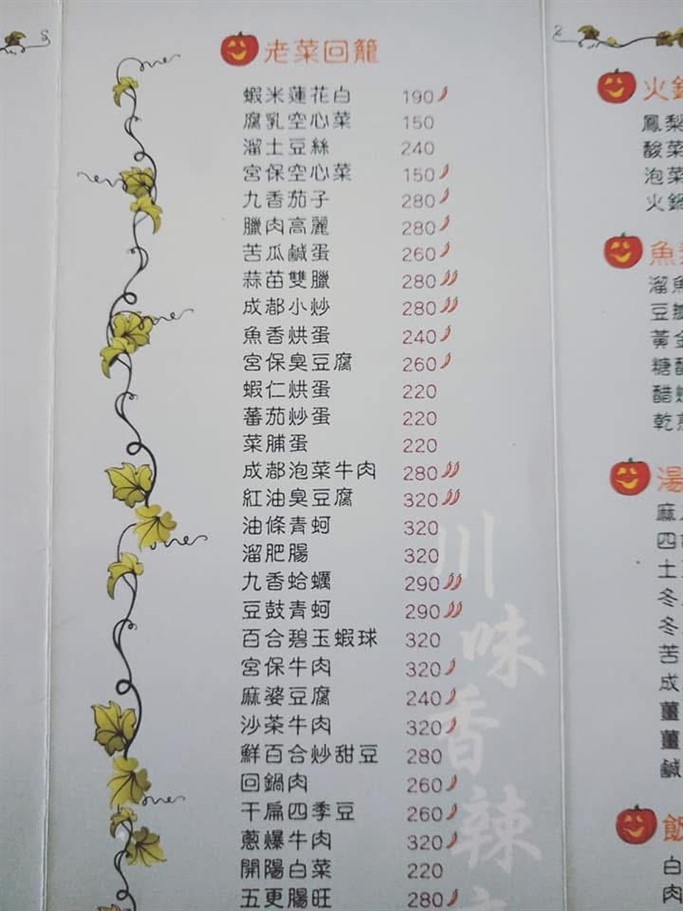 老菜回籠
蝦米蓮花白 190
腐乳空心菜 150
溜土豆絲 240
宮保空心菜 150
九香茄子 280
臘肉高麗 280
苦瓜鹹蛋 260
蒜苗雙臘 280
成都小炒 280
魚香烘蛋 240
宮保臭豆腐 260
蝦仁烘蛋 220
蕃茄炒蛋 220
菜脯蛋 220
成都泡菜牛肉 280
紅油臭豆腐 320
油條青蚵 320
溜肥腸 320
九香蛤蠣 290
豆鼓青蚵 290
百合碧玉蝦球 320
宮保牛肉 320
麻婆豆腐 240
沙茶牛肉 320
鮮百合炒甜豆 280
回鍋肉 260
干扁四季豆 260
蔥爆牛肉 320
開陽白菜 220
五更腸旺 280
川味香辣
2
火鍋
鳳梨
酸菜
泡菜
火鍋
魚
溜魚
豆瓣
黃金
糖醋
醋
乾
湯
麻
四
土
冬
冬
苦
成
薑
薑
鹹
飯
白
肉